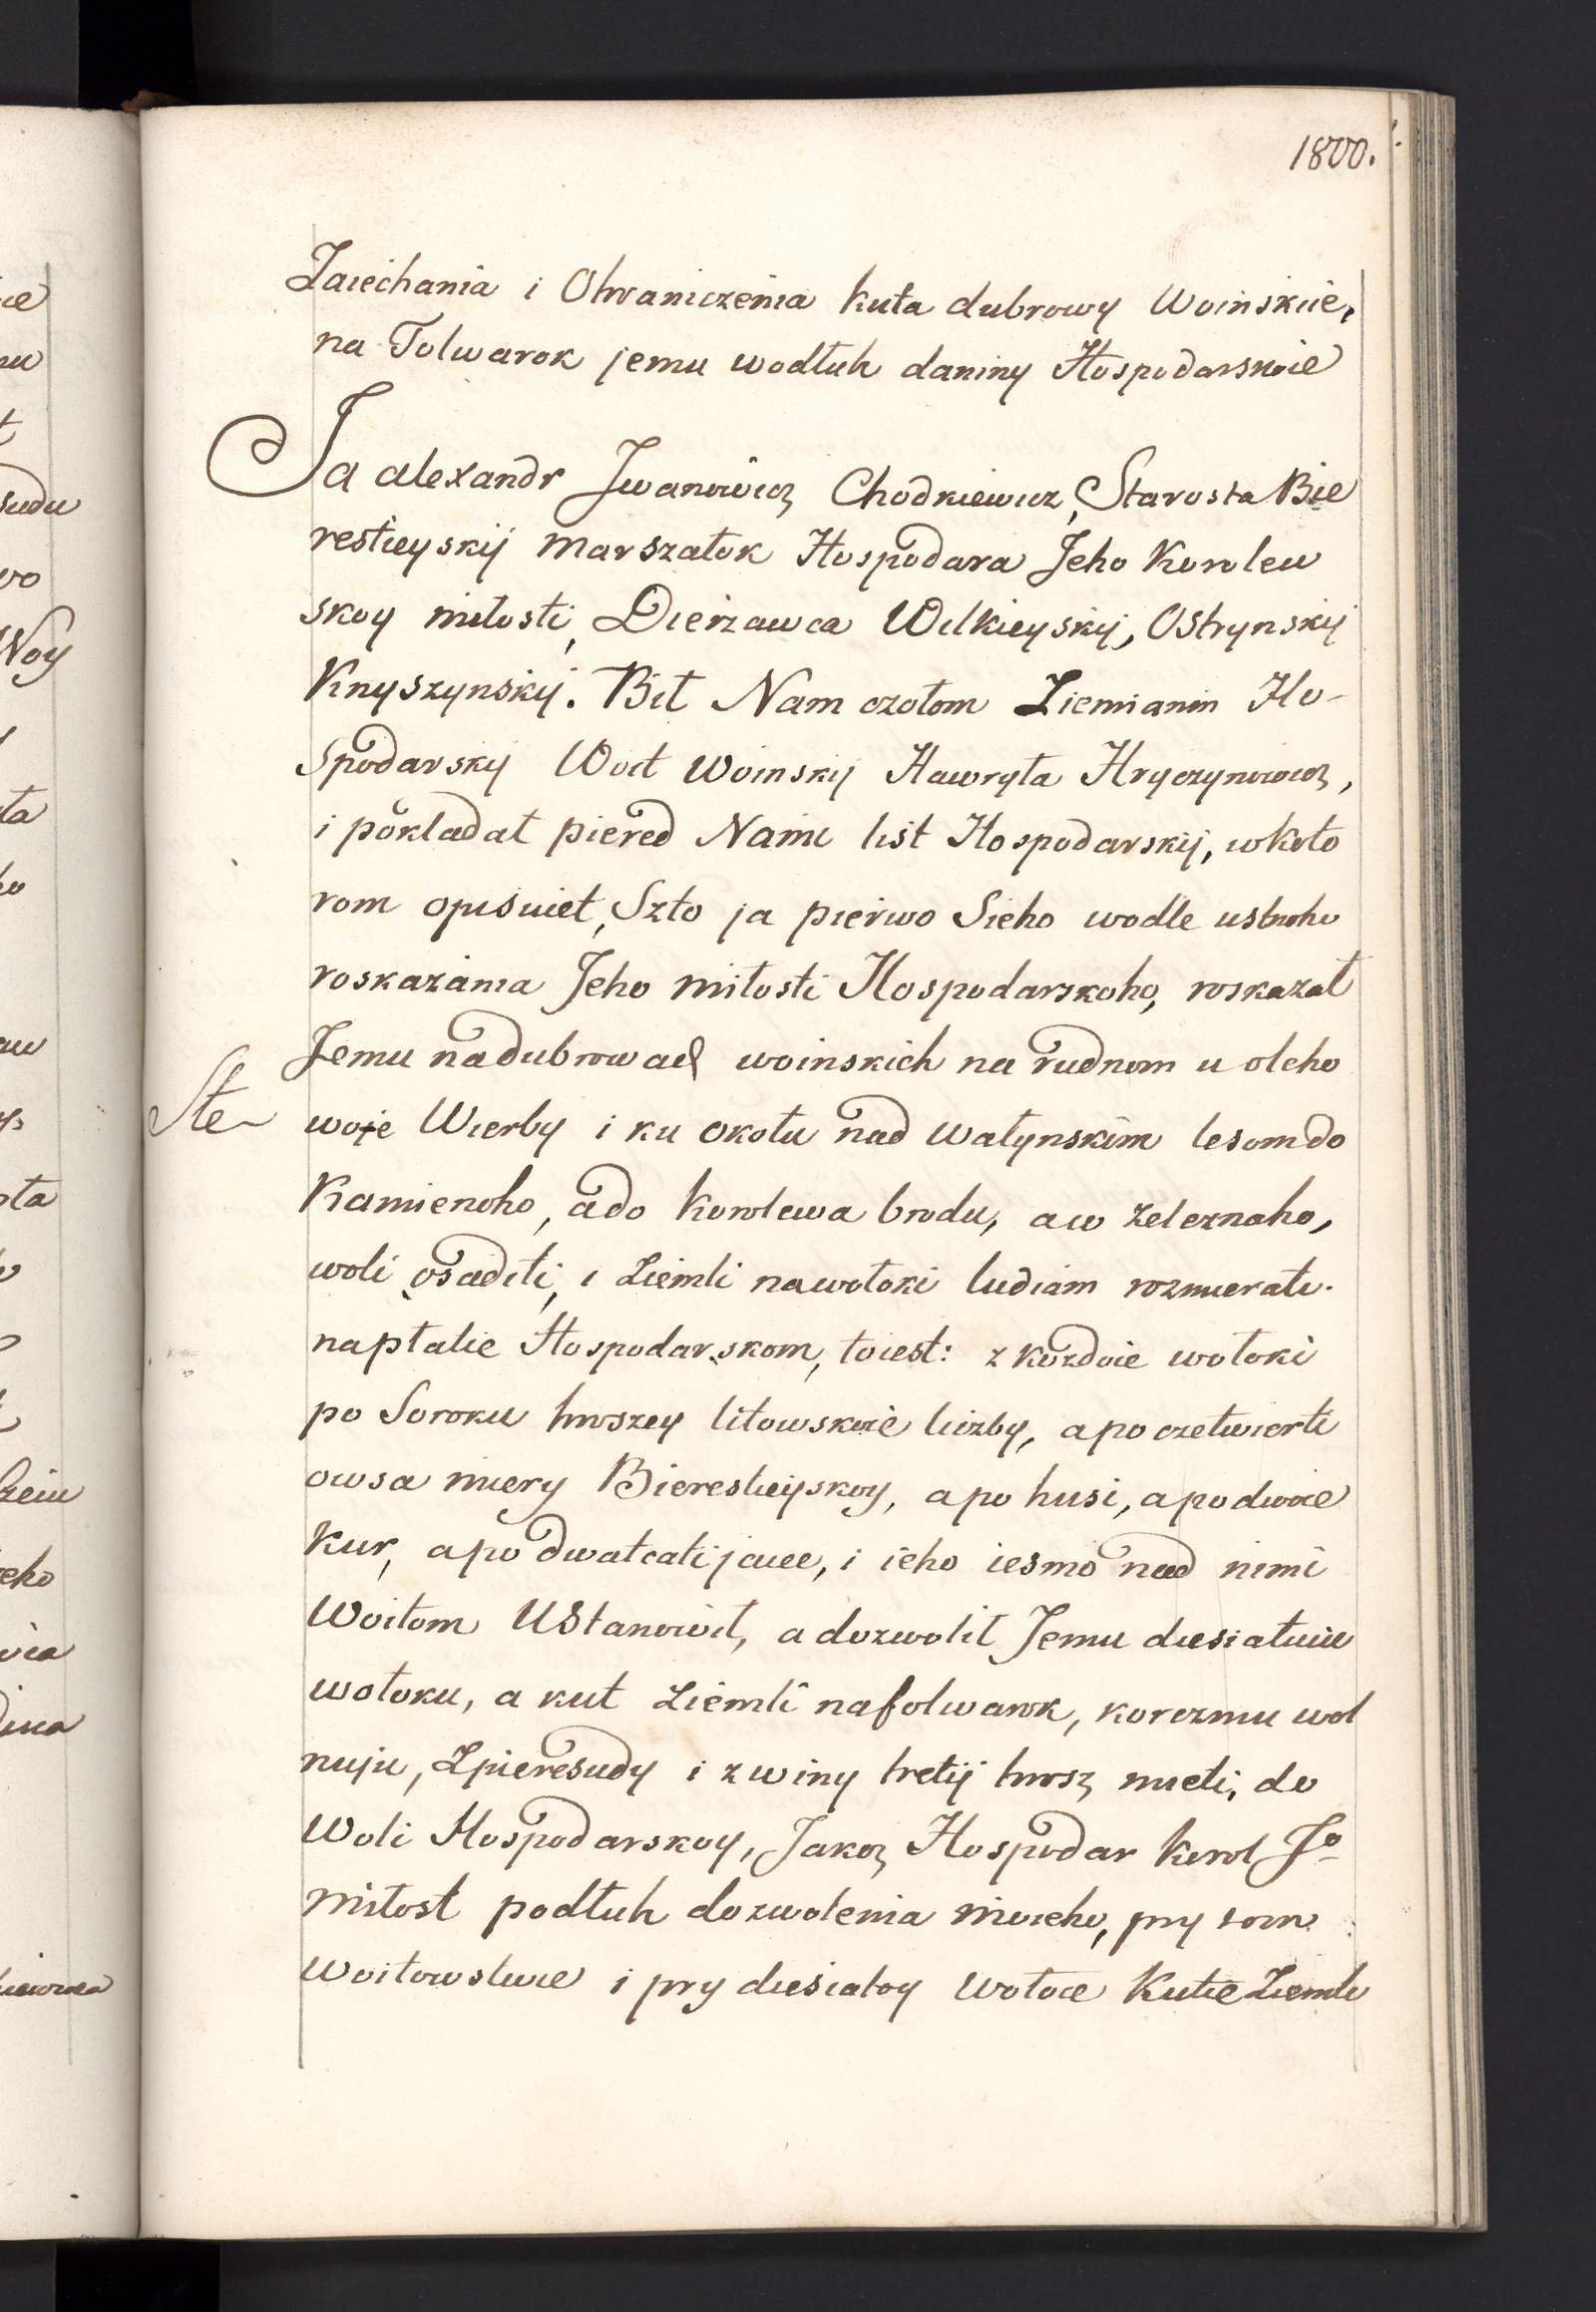 1800.
Zaiechania i Ohraniczenia kuta dubrowy Woinskiie,
na Folwarok jemu wodłuh daniny Hospodarskoie
Ja alexandr Jwanowicz Chodkiewicz, Starosta Bie
restieyskij Marszałok Hospodara Jeho Korolew
skoy miłosti, Dierżawca Wilkieyskij, Ostrynskij
Knyszynskij. Bił Nam czołom Ziemianin Ho-
spodarskij Woit Woinskij Hawryła Hryczynowicz,
i pokladał piered Nami list Hospodarskij, wkoto
rom opisuiet, Szto ja pierwo Sieho wodle ustnoho
roskazania Jeho miłosti Hospodarskoho, roskazał
Jemu nadubrowach woinskich na rudnom u oleho
Ste- woje Wierby i ku okołu nad wałynskim lesom do
Kamienoho, ado Korolewa brodu, aw żeleznaho,
woli osaditi, i Ziemli nawołoki ludiam rozmierati
napłatie Hospodarskom, toiest: z kożdoie wołoki
po Soroku hroszey litowskoie liczby, apo czetwierti
owsa miery Bierestieyskoy, apo husi, apo dwoie
Kur, apo dwatcati jaiec, i ieho iesmo nad nimi
Woitom Ustanowił, a dozwolił Jemu diesiatuiu
wołoku, a kut Ziemli nafolwarok, korczmu wol
nuju, Zpieresudy i zwiny tretij hrosz mieti, do
Woli Hospodarskoy, Jakoz Hospodar Korol Jo
miłost podłuh dozwolenia moieho, pry tom
Woitowstwie i pry diesiatoy wołoce Kutie Ziemli